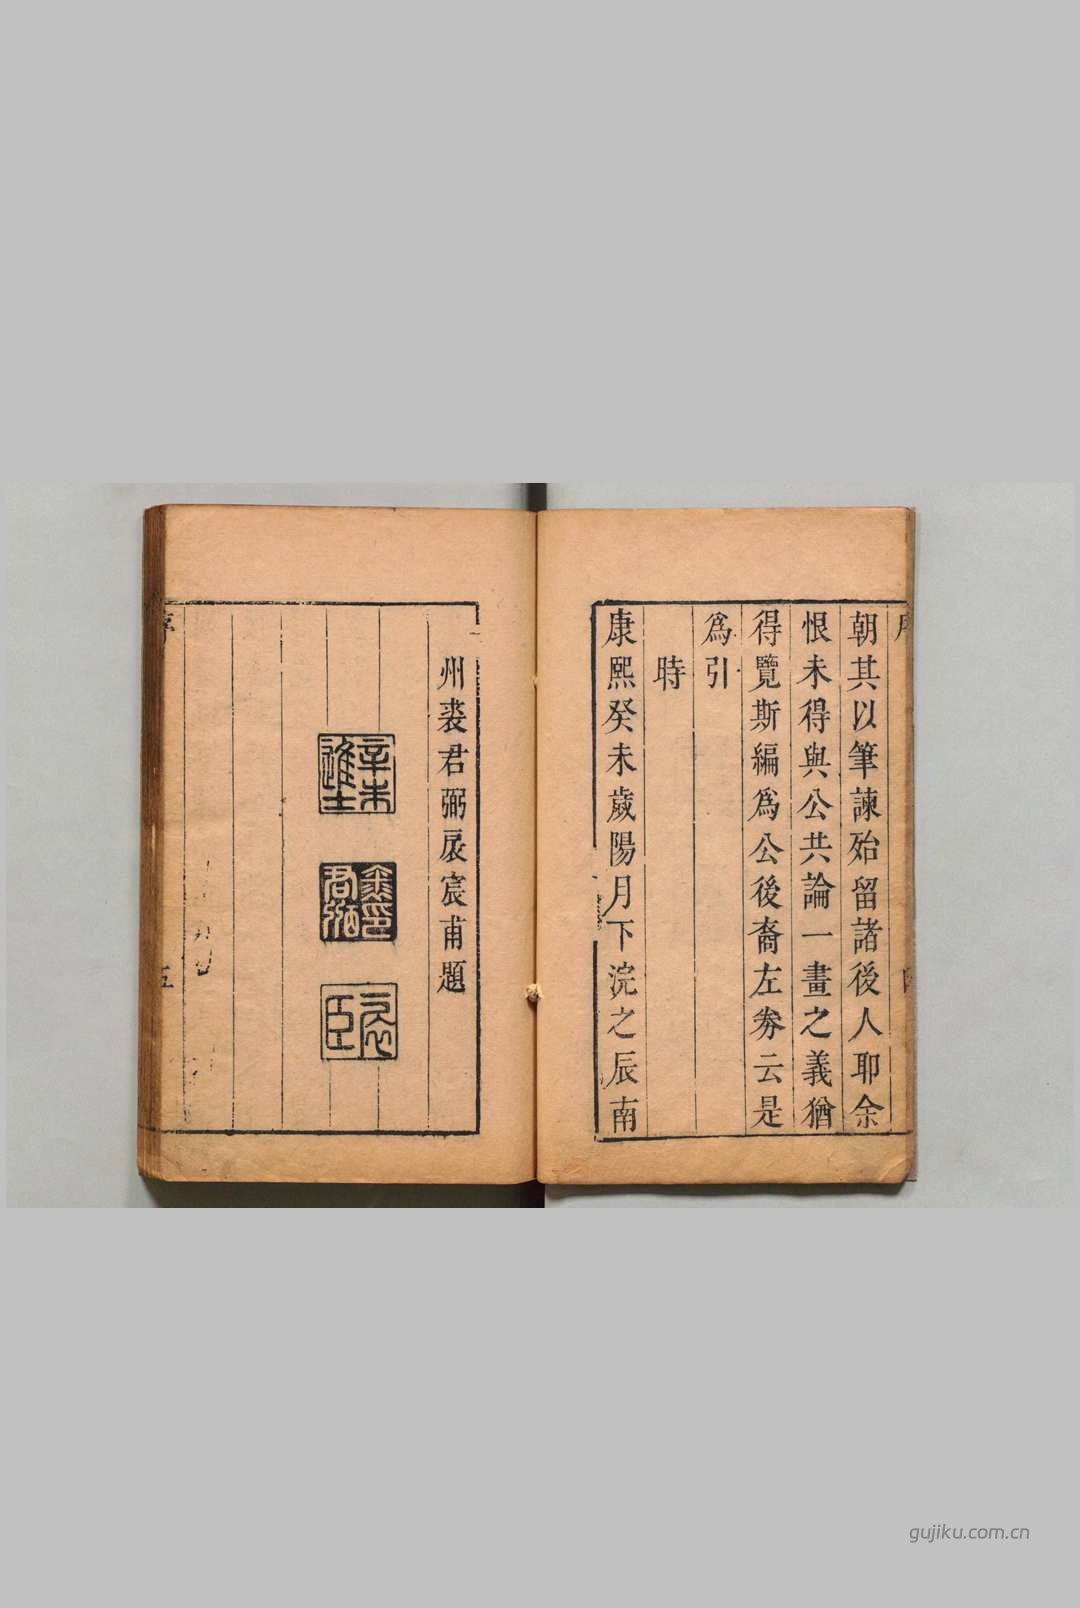 朝其以筆諫殆留諸後人耶余
恨未得與公共論一畫之義猶
得覽斯編爲公後裔左券云是
爲引
時
康熙癸未歲陽月下浣之辰南
州裘君弼宸甫題
辛未進士
序
五
gujiku.com.cn